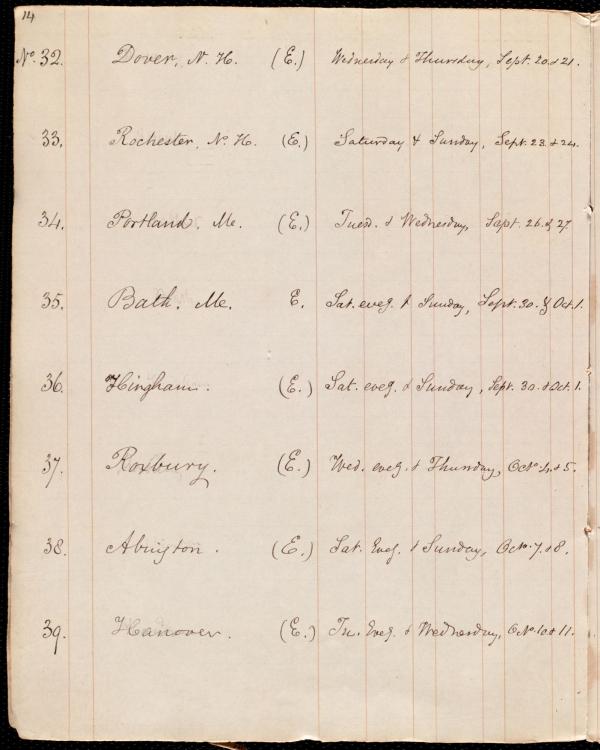 14
No. 32. Dover, N. H. (E.) Wednesday & Thursday, Sept. 20. & 21.
33. Rochester, N. H. (E.) Saturday & Sunday, Sept. 23. & 24.
34. Portland, Me. (E.) Tuesd. & Wednesday, Sept. 26. & 27.
35. Bath, Me. E. Sat. eveg. & Sunday, Sept. 30. & Oct. 1.
36. Hingham. (E.) Sat. eveg. & Sunday, Sept. 30. & Oct. 1.
37. Roxbury. (E.) Wed. eveg. & Thursday, Oct. 4. & 5.
38. Abington. (E.) Sat. Eveg. & Sunday, Oct. 7. & 8.
39. Hanover. (E.) Tu. Eveg. & Wednesday, Oct. 10. & 11.